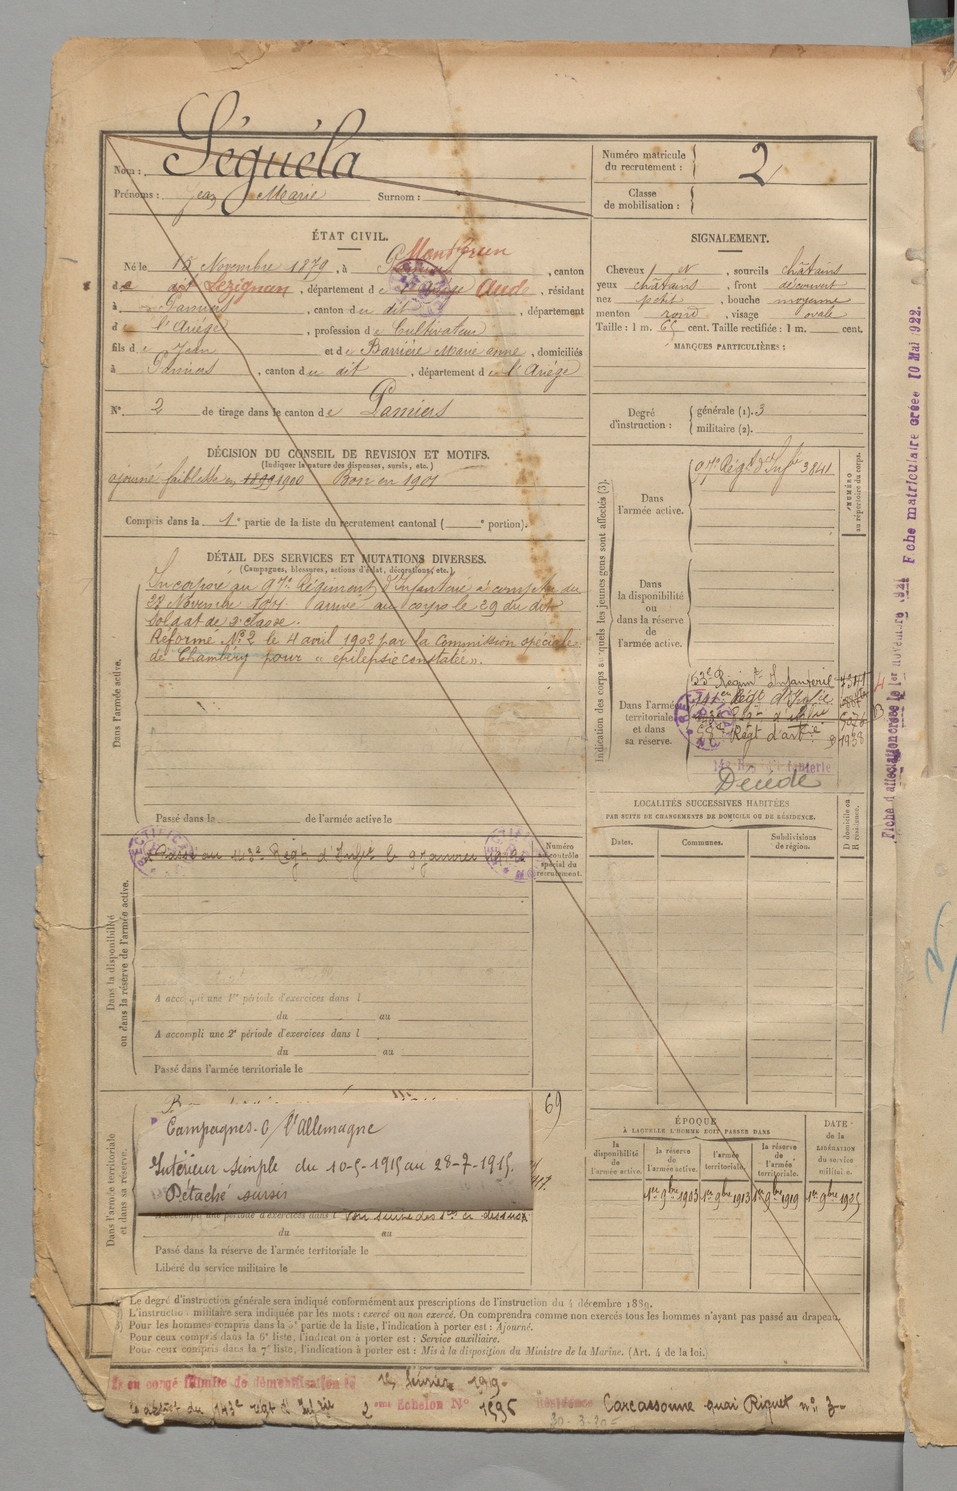 Séguéla
Nom :
Prénoms : Jean Marie Surnom :
Numéro matricule du recrutement : 2
Classe de mobilisation :
ÉTAT CIVIL.
Montbrun
Né le 15 Novembre 1879, à Pamiers, canton
de dit Lézignan, département de l'Ariége Aude, résidant
à Pamiers, canton du dit, département
de l'Ariége, profession de Cultivateur
fils de Jean et de Barrière Marie Anne, domiciliés
à Pamiers, canton du dit, département de l'Ariége
N° 2 de tirage dans le canton de Pamiers
SIGNALEMENT.
Cheveux et, sourcils châtains
yeux châtains, front découvert
nez petit, bouche moyenne
menton rond, visage ovale
Taille : 1 m. 65 cent. Taille rectifiée : 1 m. cent.
MARQUES PARTICULIÈRES :
Degré d'instruction : générale (1). 3
militaire (2).
DÉCISION DU CONSEIL DE REVISION ET MOTIFS.
(Indiquer la nature des dispenses, sursis, etc.)
ajourné faiblesse en 1899 1900 Bon en 1901
Compris dans la 1e partie de la liste du recrutement cantonal ( e portion).
DÉTAIL DES SERVICES ET MUTATIONS DIVERSES.
(Campagnes, blessures, actions d'éclat, décorations, etc.)
Dans l'armée active.
Incorporé au 97e Régiment d'Infanterie à compter du
23 Novembre 1901 arrivé au corps le 29 du dit
Soldat de 2e classe
Réformé N° 2 le 4 avril 1902 par la Commission spéciale
de Chambéry pour « épilepsie constatée ».
Passé dans la de l'armée active le
Indication des corps auxquels les jeunes gens sont affectés (3).
NUMÉRO au répertoire du corps.
Dans l'armée active.
97e Régt d'Infie 3841
Dans la disponibilité ou dans la réserve de l'armée active.
Dans l'armée territoriale et dans sa réserve.
53e Regimt Infanterie 7341
Régt d'Infie
Régt d'Infie
Régt d'artie 1938
Décédé
LOCALITÉS SUCCESSIVES HABITÉES
PAR SUITE DE CHANGEMENTS DE DOMICILE OU DE RÉSIDENCE.
Dates. Communes. Subdivisions de région. D domicile ou R résidence.
Dans la disponibilité ou dans la réserve de l'armée active.
Passé au 143e Régt d'Infie le 9 janvier
Numéro au contrôle spécial du recrutement.
A accompli une 1re période d'exercices dans l
du au
A accompli une 2e période d'exercices dans l
du au
Passé dans l'armée territoriale le
Dans l'armée territoriale et dans sa réserve.
69
Campagnes C / l'Allemagne
Intérieur simple du 10-5-1915 au 28-7-1915.
Détaché sursis
A accompli une période d'exercices dans l
du au
Passé dans la réserve de l'armée territoriale le
Libéré du service militaire le
ÉPOQUE
À LAQUELLE L'HOMME DOIT PASSER DANS
la disponibilité de l'armée active. la réserve de l'armée active. l'armée territoriale. la réserve de l'armée territoriale.
DATE de la LIBÉRATION du service militaire.
1er 9bre 1903 1er 9bre 1913 1er 9bre 1919 1er 9bre 1925
(1) Le degré d'instruction générale sera indiqué conformément aux prescriptions de l'instruction du 4 décembre 1889.
L'instruction militaire sera indiquée par les mots : exercé ou non exercé. On comprendra comme non exercés tous les hommes n'ayant pas passé au drapeau.
Pour les hommes compris dans la 5e partie de la liste, l'indication à porter est : Ajourné.
Pour ceux compris dans la 6e liste, l'indication à porter est : Service auxiliaire.
Pour ceux compris dans la 7e liste, l'indication à porter est : Mis à la disposition du Ministre de la Marine. (Art. 4 de la loi.)
en congé illimité de démobilisation le février 1919
le dépôt du 143e régt d'Infie 2eme Échelon N° 1596 Résidence Carcassonne quai Riquet n° 3
30-3-20
Fiche d'affectation créée le 1er novembre 1921 Fiche matriculaire créée 10 Mai 1922.